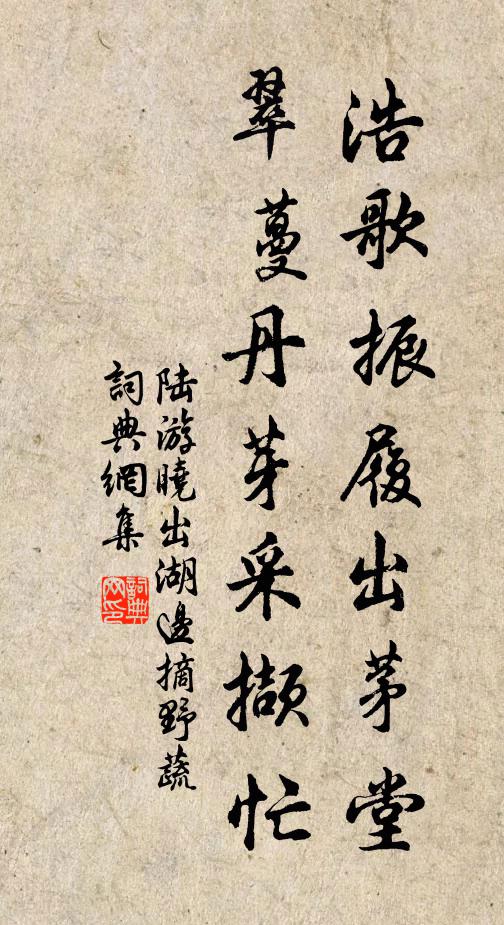 浩歌振履出茅堂
翠蔓丹芽采擷忙
陆游曉出湖邊摘野蔬
詞典網集
詞典
网印